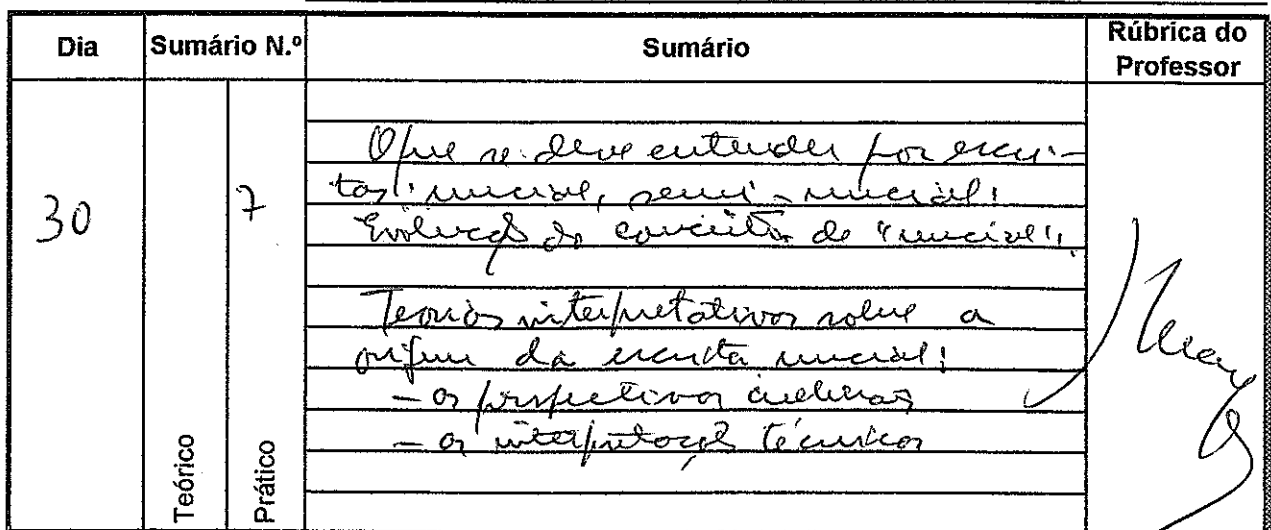 Dia Sumário N.º Sumário Rúbrica do Professor
30 7
O que se deve entender por escri-
tas: uncial, semi-uncial!
Evolução do conceito de "uncial".
Teorias interpretativas sobre a
origem da escrita uncial:
- as perspectivas
- as interpretações técnicas
Teórico Prático